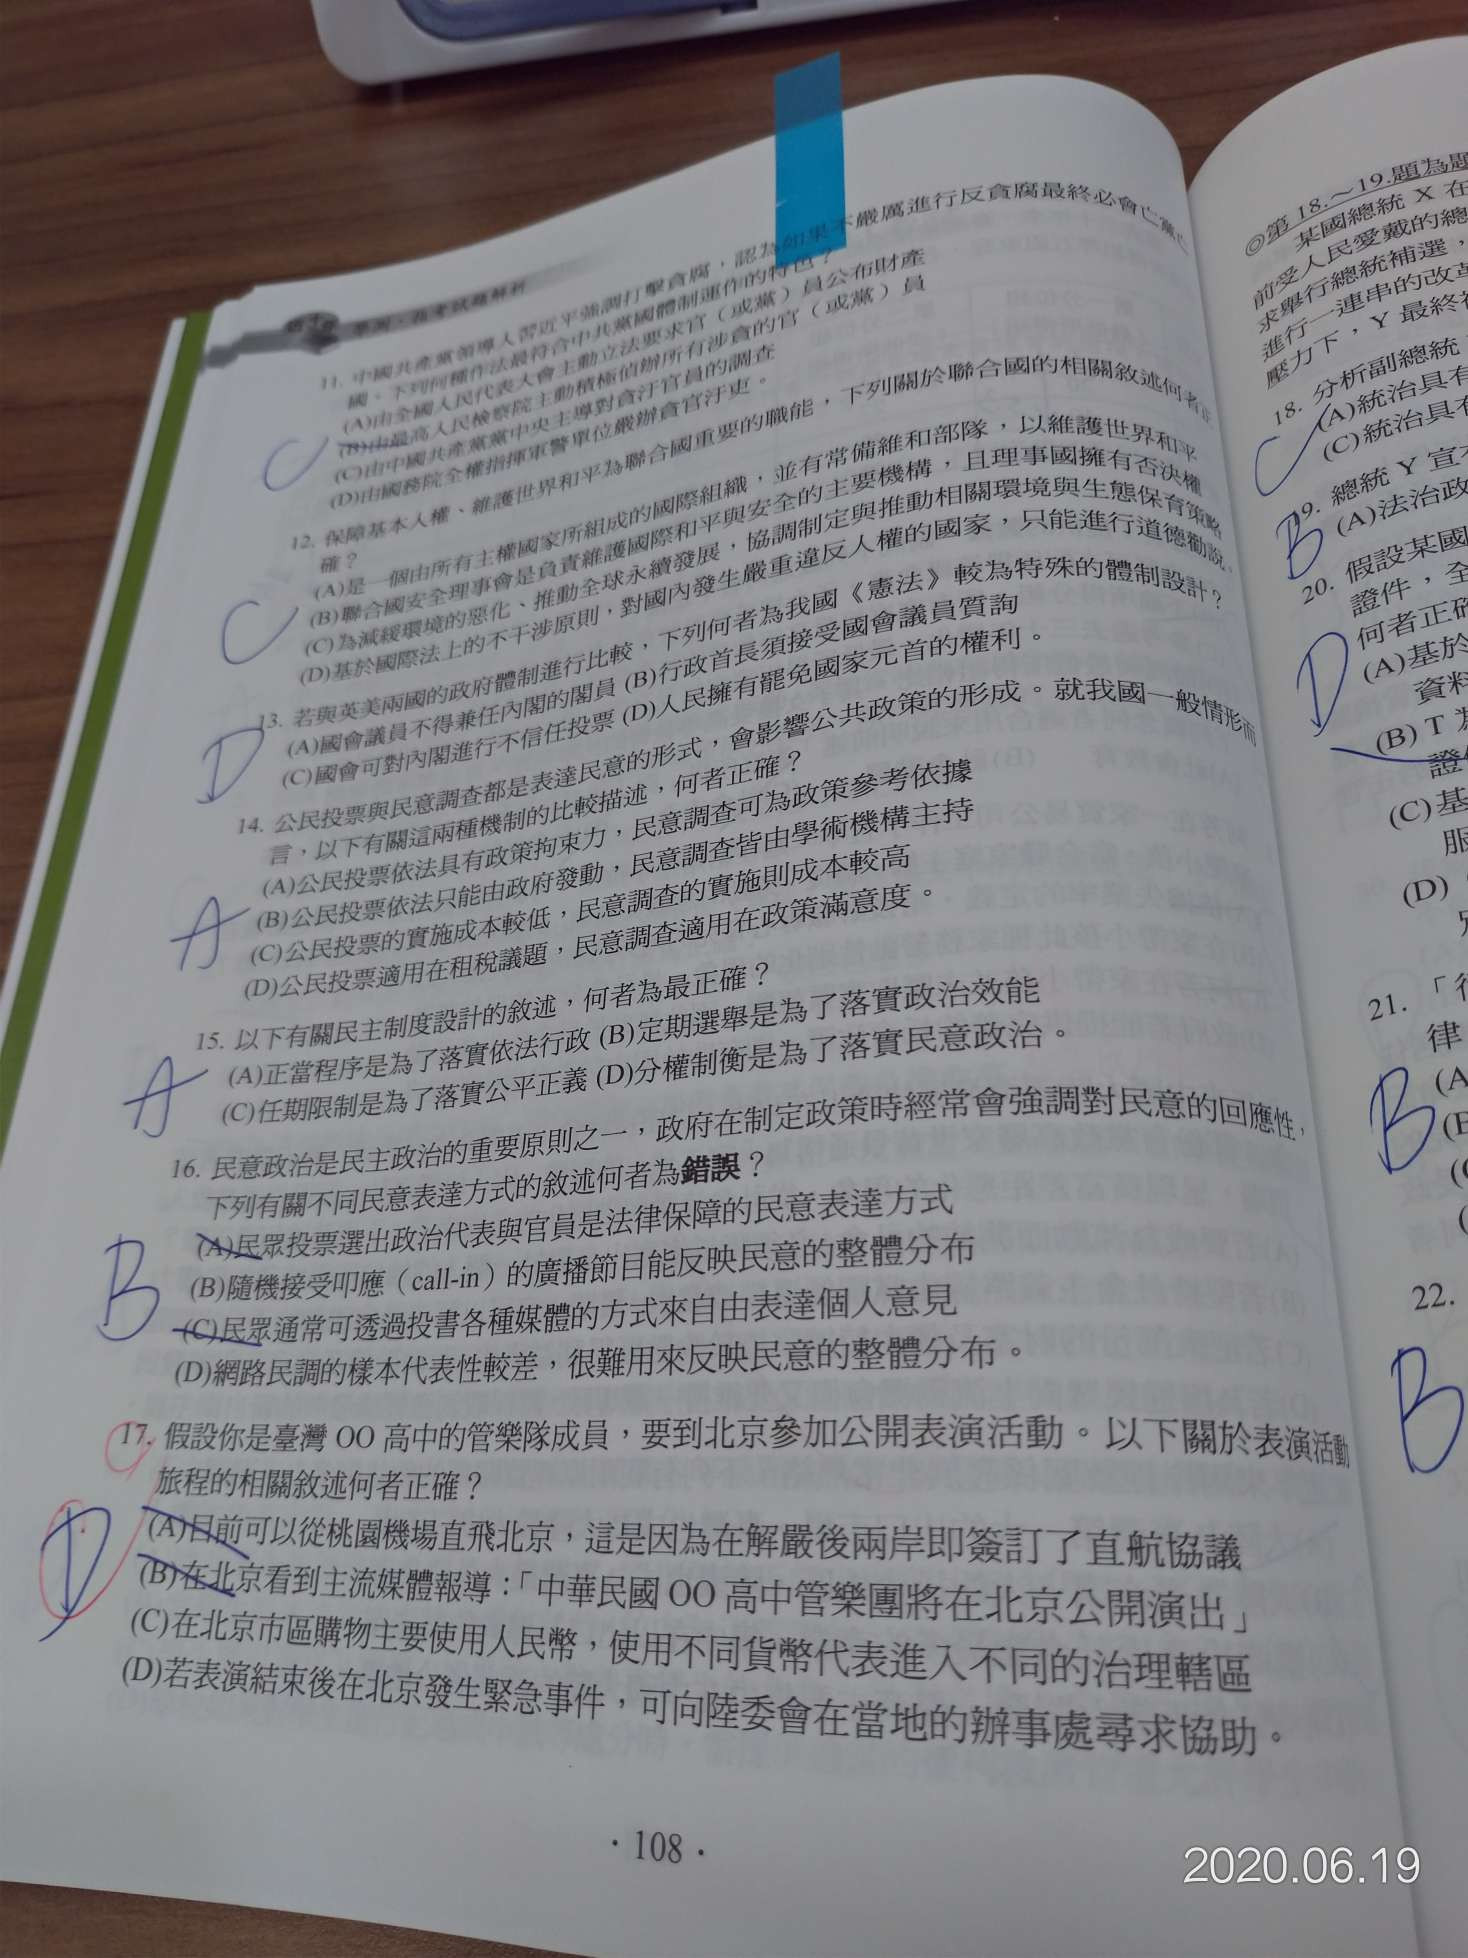 學測‧指考試題解析
11. 中國共產黨領導人習近平強調打擊貪腐，認為如果不嚴厲進行反貪腐最終必會亡黨亡
國。下列何種作法最符合中共黨國體制運作的特色？
(A)由全國人民代表大會主動立法要求官（或黨）員公布財產
(B)由最高人民檢察院主動積極偵辦所有涉貪的官（或黨）員
(C)由中國共產黨黨中央主導對貪汙官員的調查
(D)由國務院全權指揮軍警單位嚴辦貪官汙吏。
C
12. 保障基本人權、維護世界和平為聯合國重要的職能，下列關於聯合國的相關敘述何者正
確？
(A)是一個由所有主權國家所組成的國際組織，並有常備維和部隊，以維護世界和平
(B)聯合國安全理事會是負責維護國際和平與安全的主要機構，且理事國擁有否決權
(C)為減緩環境的惡化、推動全球永續發展，協調制定與推動相關環境與生態保育策略
(D)基於國際法上的不干涉原則，對國內發生嚴重違反人權的國家，只能進行道德勸說。
C
13. 若與英美兩國的政府體制進行比較，下列何者為我國《憲法》較為特殊的體制設計？
(A)國會議員不得兼任內閣的閣員 (B)行政首長須接受國會議員質詢
(C)國會可對內閣進行不信任投票 (D)人民擁有罷免國家元首的權利。
D
14. 公民投票與民意調查都是表達民意的形式，會影響公共政策的形成。就我國一般情形而
言，以下有關這兩種機制的比較描述，何者正確？
(A)公民投票依法具有政策拘束力，民意調查可為政策參考依據
(B)公民投票依法只能由政府發動，民意調查皆由學術機構主持
(C)公民投票的實施成本較低，民意調查的實施則成本較高
(D)公民投票適用在租稅議題，民意調查適用在政策滿意度。
A
15. 以下有關民主制度設計的敘述，何者為最正確？
(A)正當程序是為了落實依法行政 (B)定期選舉是為了落實政治效能
(C)任期限制是為了落實公平正義 (D)分權制衡是為了落實民意政治。
A
16. 民意政治是民主政治的重要原則之一，政府在制定政策時經常會強調對民意的回應性，
下列有關不同民意表達方式的敘述何者為錯誤？
(A)民眾投票選出政治代表與官員是法律保障的民意表達方式
(B)隨機接受叩應（call-in）的廣播節目能反映民意的整體分布
(C)民眾通常可透過投書各種媒體的方式來自由表達個人意見
(D)網路民調的樣本代表性較差，很難用來反映民意的整體分布。
B
17. 假設你是臺灣 OO 高中的管樂隊成員，要到北京參加公開表演活動。以下關於表演活動
旅程的相關敘述何者正確？
(A)目前可以從桃園機場直飛北京，這是因為在解嚴後兩岸即簽訂了直航協議
(B)在北京看到主流媒體報導：「中華民國 OO 高中管樂團將在北京公開演出」
(C)在北京市區購物主要使用人民幣，使用不同貨幣代表進入不同的治理轄區
(D)若表演結束後在北京發生緊急事件，可向陸委會在當地的辦事處尋求協助。
D
‧108‧
◎第 18.～19.題為題
某國總統 X 在
前受人民愛戴的總
求舉行總統補選，
進行一連串的改革
壓力下，Y 最終被
18. 分析副總統
(A)統治具有
(C)統治具有
C
19. 總統 Y 宣
(A)法治政
B
20. 假設某國
證件，全
何者正確
(A)基於
資料
(B) T 為
證件
(C)基
服
(D)
D
21. 「行
律
(A
(B
(C
B
22.
B
2020.06.19